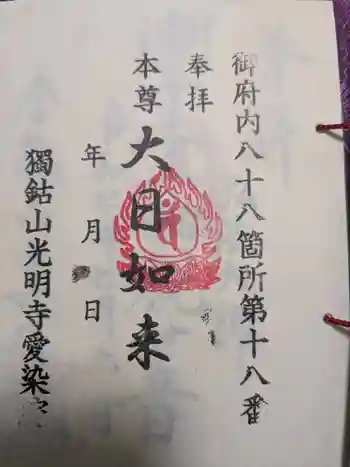 御府内八十八箇所第十八番
奉拝
本尊
大日如来
年月日
獨鈷山光明寺愛染